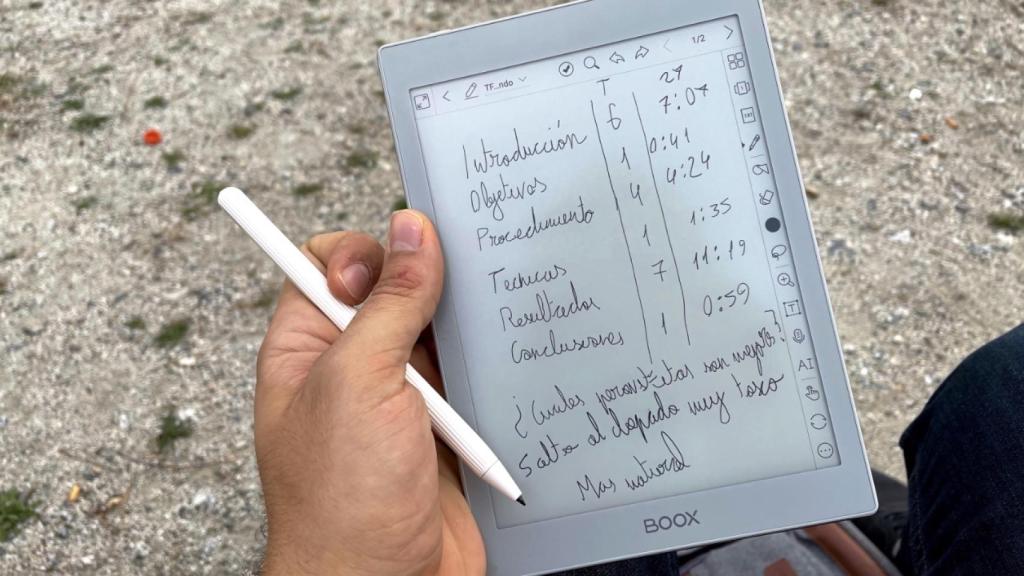 TF...ndo 1/2
T 27
Introducción 6 7:07
Objetivos 1 0:41
Procedimiento 4 4:24
Tecnicas 1 1:35
Resultados 7 11:19
Conclusiones 1 0:59
¿Cuales perovskitas son mejor?
Salto al dopado muy toxo
Mas natural
AI
BOOX